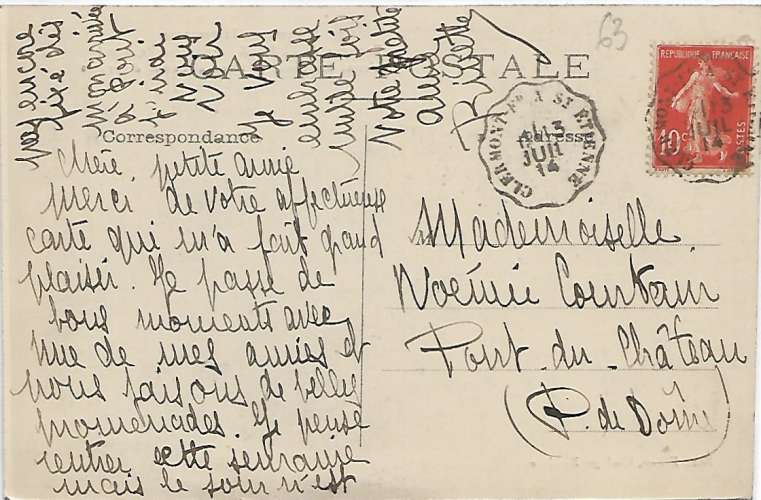 63
CARTE POSTALE
REPUBLIQUE FRANÇAISE
10c
POSTES
CLERMONT-FD A ST ETIENNE
13
JUIL
14
Correspondance
Adresse
Chère petite amie
Merci de votre affectueuse
carte qui m'a fait grand
plaisir. Je passe de
bons moments avec
une de mes amies et
nous faisons de belles
promenades. Je pense
rentrer cette semaine
mais le jour n'est
pas encore
fixé dès
mon arrivée
à Pont
j'irai
vous
voir
Je vous
embrasse
mille fois
Votre petite
amie
Mademoiselle
Noémie Courtain
Pont-du-Château
(P. de Dôme)